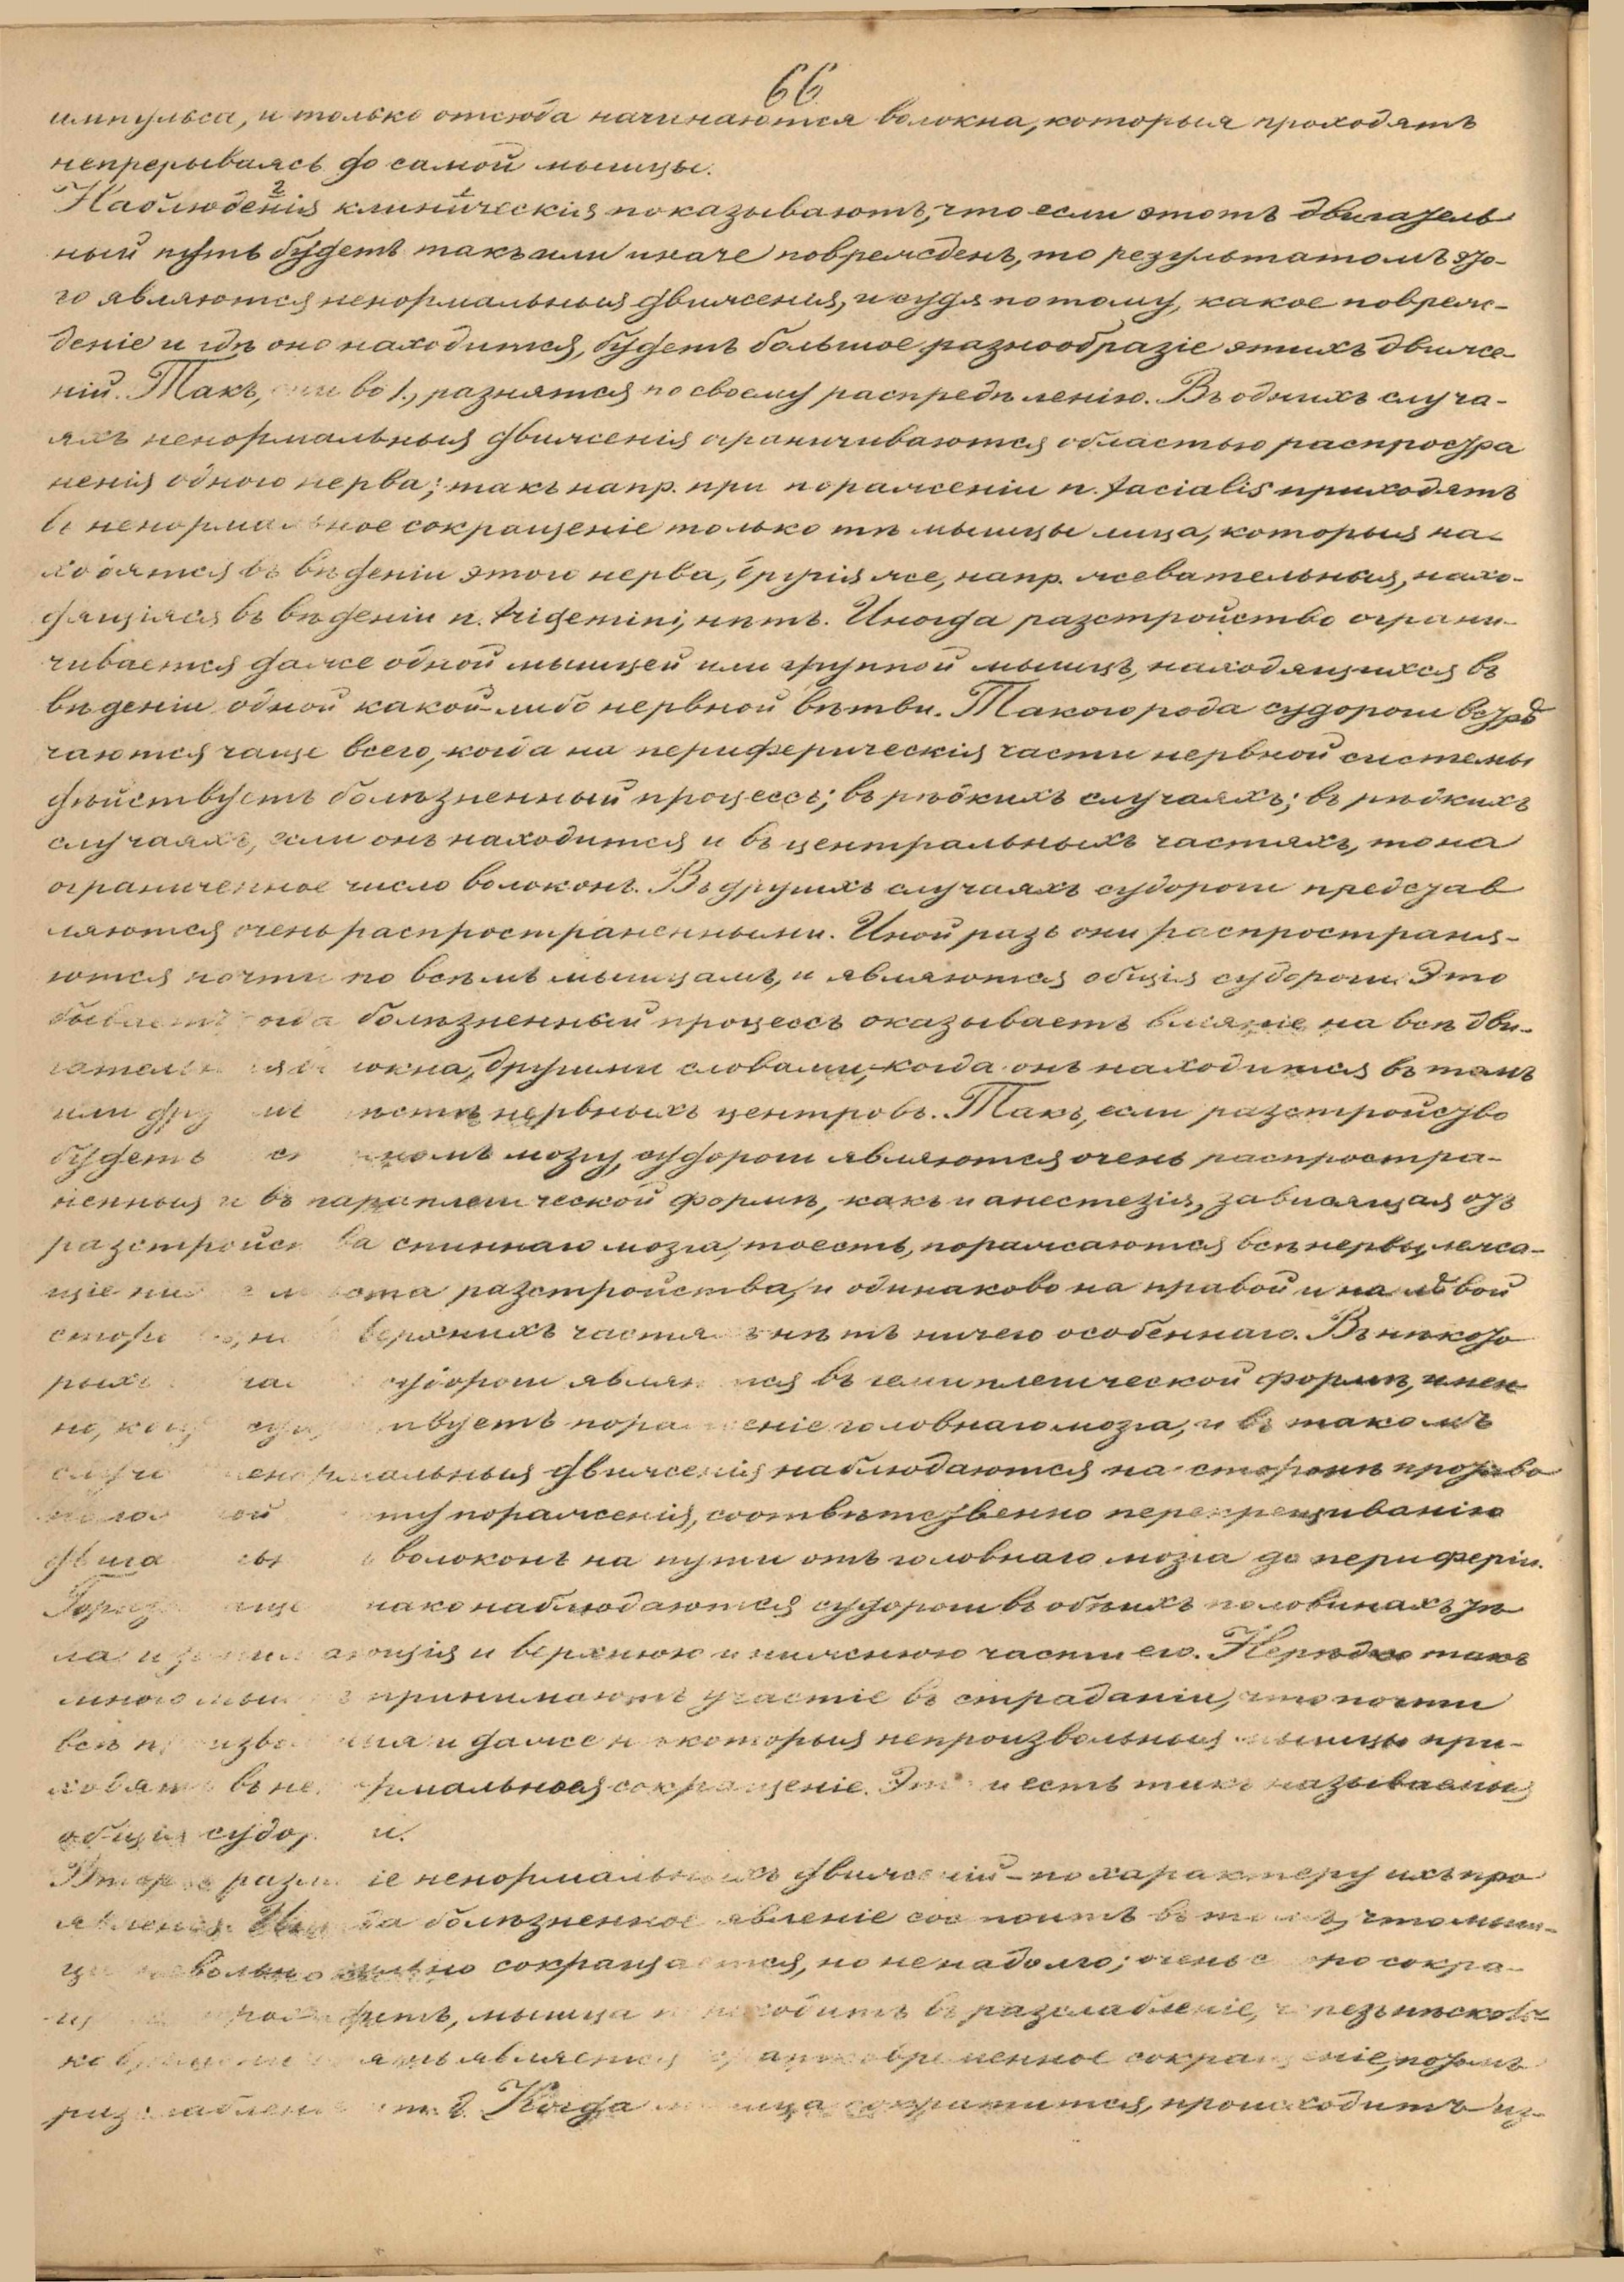 66
импульса, и только отсюда начинаются волокна, которыя проходятъ
непрерываясь до самой мышцы.
Наблюденія 2 клиническія 1 показываютъ, что если этотъ двигатель
ный путь будетъ такъ или иначе поврежденъ, то результатомъ это-
го являются ненормальныя движенія, и судя потому, какое повреж-
деніе и гдѣ оно находится, будетъ большое разнообразіе этихъ движе-
ній. Такъ, во 1., разнятся по своему распредѣленію. Въ однихъ случа-
яхъ ненормальныя движенія ограничиваются областью распростра
ненія одного нерва; такъ напр. при пораженіи n. facialis приходятъ
въ ненормальное сокращеніе только тѣ мышцы лица, которыя на-
ходятся въ вѣденіи этого нерва, другія же, напр. жевательныя, нахо-
дящіяся въ вѣденіи n. trigemini, нѣтъ. Иногда разстройство ограни-
чивается даже одной мышцей или группой мышцъ, находящихся въ
вѣденіи одной какой-либо нервной вѣтви. Такого рода судороги встрѣ
чаются чаще всего, когда на периферическія части нервной системы
дѣйствуетъ болѣзненный процессъ; въ рѣдкихъ случаяхъ; въ рѣдкихъ
случаяхъ, если онъ находится и въ центральныхъ частяхъ, то на
ограниченное число волоконъ. Въ другихъ случаяхъ судороги представ
ляются очень распространенными. Иной разъ они распространя-
ются почти по всѣмъ мышцамъ, и являются общія судороги. Это
бываетъ болѣзненный процессъ оказываетъ вліяніе на всѣ дви-
другими словами, когда онъ находится въ той
или нервныхъ центровъ. Такъ, если разстройство
будетъ мозгу, судороги являются очень распростра-
ненныя и въ параплегической формѣ, какъ и анестезія, зависящая отъ
разстройства спиннаго мозга, тоесть, поражаются всѣ нервы, лежа-
щіе разстройства, и одинаково на правой и на лѣвой
верхнихъ частяхъ нѣтъ ничего особеннаго. Въ нѣкото
рыхъ судороги являются въ гемиплегической формѣ, имен
но, пораженіе головнаго мозга, и въ такомъ
ненормальныя движенія наблюдаются на сторонѣ противо
пораженія, соотвѣтственно перекрещиванію
волоконъ на пути отъ головнаго мозга до периферіи.
наблюдаются судороги въ обѣихъ половинахъ тѣ
ла, и верхнюю и нижнюю части его. Нерѣдко такъ
много принимаютъ участіе въ страданіи, что почти
всѣ и даже нѣкоторыя непроизвольныя мышцы при-
ходятъ въ ненормальное сокращеніе. Это и есть такъ называемыя
общія судороги.
ненормальныхъ движеній - по характеру ихъ про
явленія. болѣзненное явленіе состоитъ въ томъ, что мыш-
сокращается, но ненадолго; очень скоро сокра-
мышца приходитъ въ разслабленіе, черезъ нѣсколь-
является кратковременное сокращеніе, потомъ
разслабленіе и т. д. Когда мышца сократится, происходитъ из-